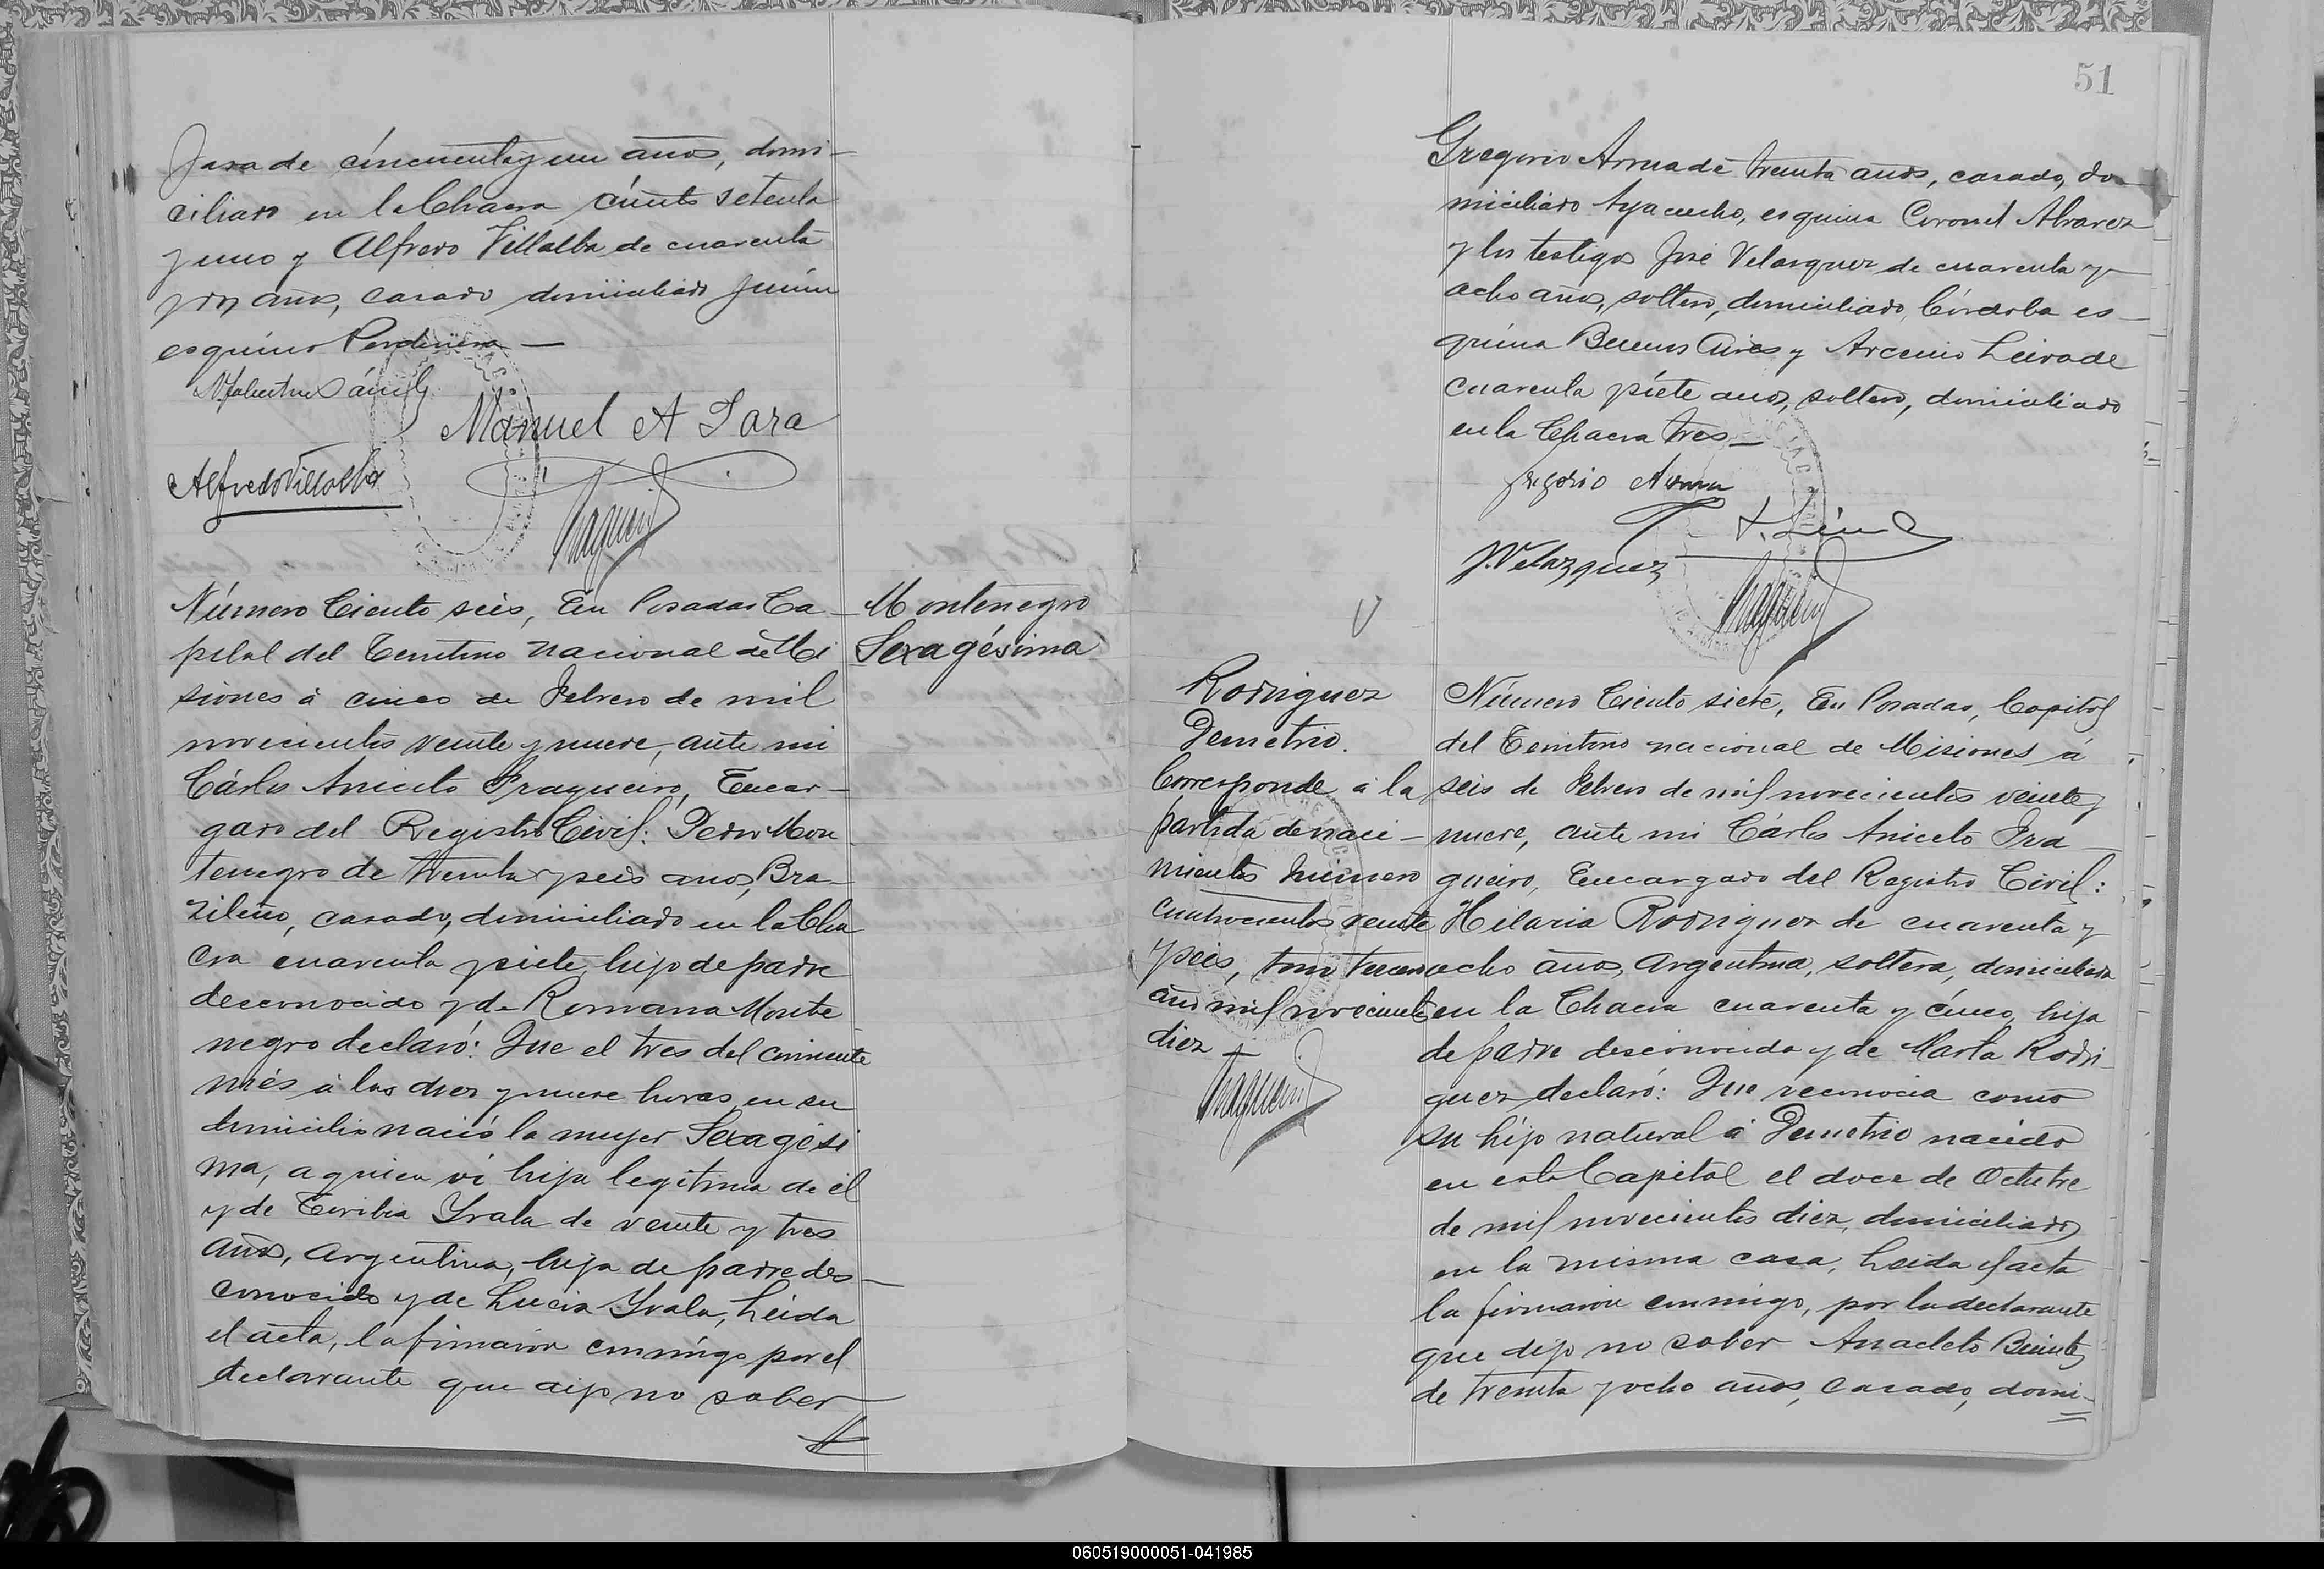 Jara de cincuenta y un años, domi-
ciliado en la Chacra ciento setenta
y uno y Alfredo Villalba de cuarenta
y dos años, casado domiciliado Junín
esquina Perdriera —
Manuel A Jara
Alfredo Villalba
Fragueiro
Número Ciento seis, En Posadas Ca-
pital del Territorio nacional de Mi
siones á cinco de Febrero de mil
novecientos veinte y nueve, ante mi
Cárlos Aniceto Fragueiro, Encar-
gado del Registro Civil: Pedro Mon
tenegro de treinta y seis años, Bra-
zileño, casado, domiciliado en la Cha
cra cuarenta y siete, hijo de padre
desconocido y de Romana Monte
negro declaró: Que el tres del corriente
més á las diez y nueve horas en su
domicilio nació la mujer Sexagési
ma, a quien ví hija legítima de él
y de Toribia Yrala de veinte y tres
años, argentina, hija de padre des-
conocido y de Lucia Yrala, Leida
el acta, la firmaron conmígo por el
declarante que dijo no saber
Montenegro
Sexagésima
51
Gregorio Arrua de treinta años, casado, do-
miciliado Ayacucho, esquina Coronel Alvarez
y los testigos José Velasquez de cuarenta y
ocho años, soltero, domiciliado, Córdoba es-
quina Buenos Aires y Arcenio Leiva de
cuarenta y siete años, soltero, domiciliado
en la Chacra tres —
Gregorio Arrua
J. Velazquez
Fragueiro
Rodriguez
Demetrio.
Corresponde á la
partida de naci-
miento número
cuatrocientos veinte
y seis, tomo tercero
año mil novecientos
diez
Fragueiro
Número Ciento siete, En Posadas, Capital
del Territorio nacional de Misiones á
seis de Febrero de mil novecientos veinte y
nueve, ante mi Cárlos Aniceto Fra-
gueiro, Encargado del Registro Civil:
Hilaria Rodriguez de cuarenta y
ocho años, argentina, soltera, domiciliada
en la Chacra cuarenta y cinco, hija
de padre desconocido y de Marta Rodri-
guez declaró: Que reconocia como
su hijo natural á Demetrio nacido
en esta Capital el doce de Octubre
de mil novecientos diez, domiciliado
en la misma casa, Leida el acta
la firmaron conmigo, por la declarante
que dijo no saber Anacleto Benitez
de treinta y ocho años, casado, domi-
060519000051-041985